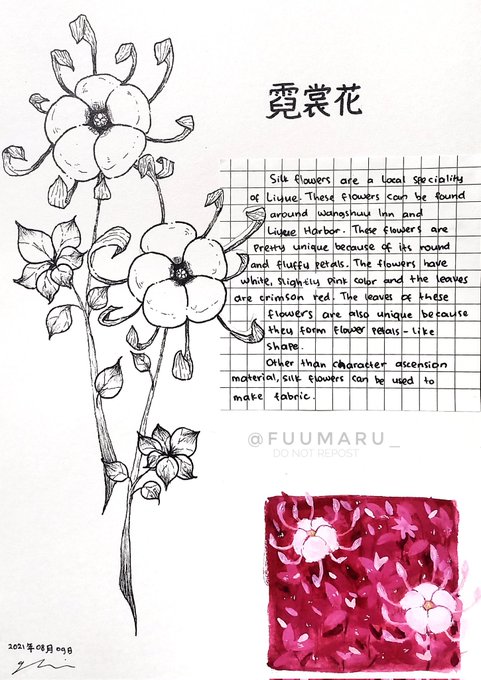 霓裳花
Silk flowers are a local speciality
of Liyue. These flowers can be found
around Wangshuu Inn and
Liyue Harbor. These flowers are
pretty unique because of its round
and fluffy petals. The flowers have
white, slightly pink color and the leaves
are crimson red. The leaves of these
flowers are also unique because
they form flower petals-like
shape.
Other than character ascension
material, silk flowers can be used to
make fabric.
@FUUMARU_
DO NOT REPOST
2021年08月09日